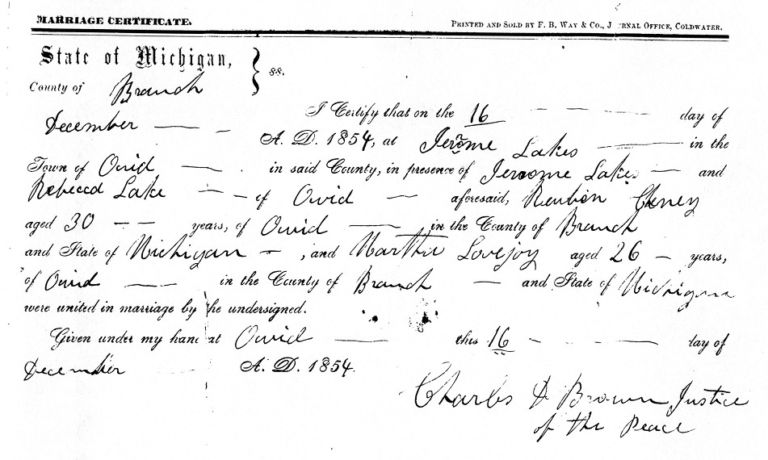 MARRIAGE CERTIFICATE. PRINTED AND SOLD BY F. B. WAY & CO., J RNAL OFFICE, COLDWATER.
State of Michigan,
County of Branch } ss.
I Certify that on the 16 day of
December A. D. 1854, at Jerome Lakes in the
Town of Ovid in said County, in presence of Jerome Lakes and
Rebecca Lake of Ovid aforesaid, Reuben
aged 30 years, of Ovid in the County of Branch
and State of Michigan, and Martha Lovejoy aged 26 years,
of Ovid in the County of Branch and State of Michigan
were united in marriage by the undersigned.
Given under my hand at Ovid this 16 day of
December A. D. 1854.
Charles D Brown Justice
of the Peace